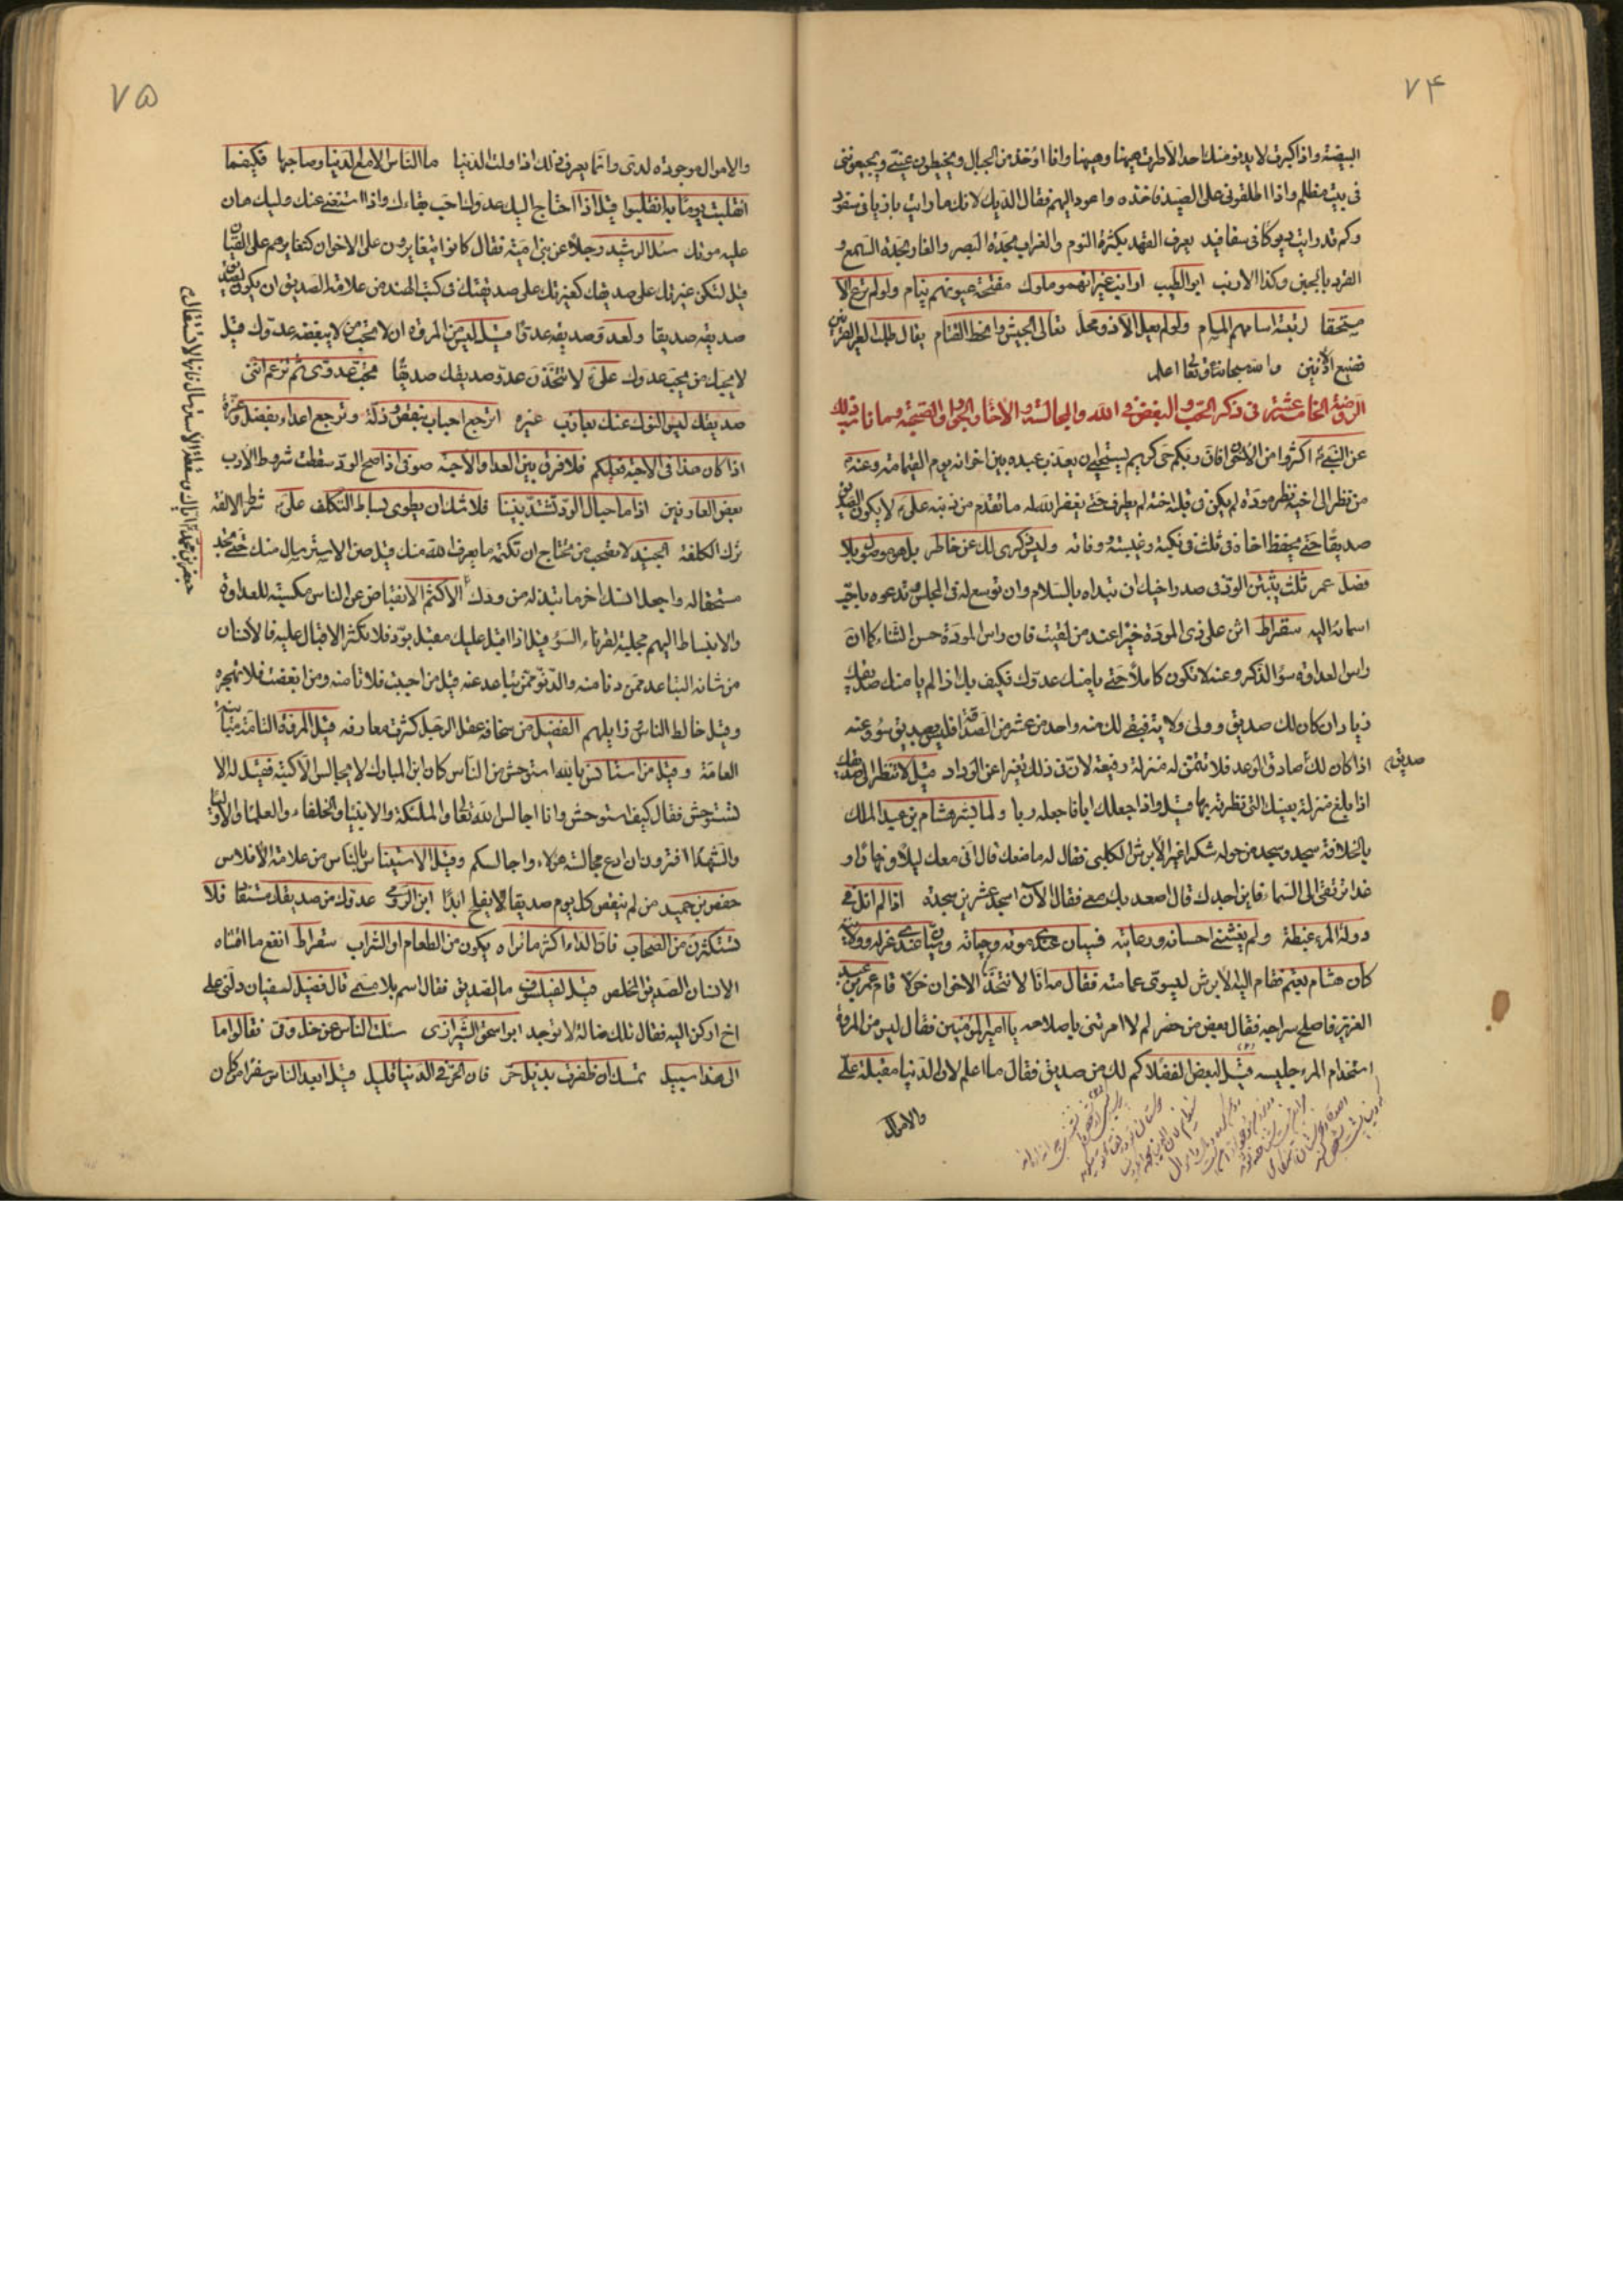 ٧۴
البيضة واذا كبرت لا يدنو منك احد الا طرت هيهنا وهيهنا وانا اوخذ من الجبال ويخيطون عيني ويجيعونني
فى بيت مظلم واذا اطلقونى على الصيد فاخذه واعود اليهم فقال الديك لانك ما رايت بازيا فى سفود
وكم قد رايت ديوكا فى سفافيد يعرف الفهد بكثرة النوم والغراب بحدة البصر والفار بحدة السمع و
القرد وكذا الارنب ابو الطيب ارانب غير انهم ملوك مفتحة عيونهم نيام ولو لم يرع الا
مستحقا لرتبة اسامهم المسام ولو لم يعل الا ذو محل تعالى الجيش وانحط القتام يقال طلب العير القرنين
فضيع الاذنين والله سبحانه وتعالى اعلم
الروضة الخامسة عشر فى ذكر الحب والبغض فى الله والمجالسة والاخاء والجوار والصحبة وما ناسب ذلك
عن النبى اكثروا من الاخوان فان ربكم حى كريم يستحيى ان يعذب عبده بين اخوانه يوم القيامة وعنه
من نظر الى اخيه نظر مودة لم يكن فى قلبه احنة لم يطرف حتى يغفر الله له ما تقدم من ذنبه على لا يكون الصديق
صديقا حتى يحفظ اخاه فى ثلث فى نكبته وغيبته ووفاته وليس ذكرى لك عن خاطر بل هو موصول بلا
فصل عمر ثلث يثبتن الود فى صدر اخيك ان تبداه بالسلام وان توسع له فى المجلس وتدعوه باحب
اسمائه اليه سقراط اثن على ذى المودة خيرا عند من لقيت فان راس المودة حسن الثناء كما ان
راس العداوة سؤ الذكر وعنه لا تكون كاملا حتى يامنك عدوك فكيف بك اذا لم يامنك صديقك
زياد ان كان لك صديق وولى ولاية فبقى لك منه واحد من عشر من الصداقة فليس بصديق سوء وعنه
اذا كان لك صادق الوعد فلا تتمن له منزلة رفيعة لان فى ذلك تغيرا عن الوداد قيل لا تنظر الى صديقك
صديق
اذا بلغ منزلة بعينك التى نظرته بها قيل واذا جعلك ابا فاجعله ربا ولما بشر هشام بن عبد الملك
بالخلافة سجد وسجد من حوله شكرا غير الابرش الكلبى فقال له ما منعك قال انى معك ليلا ونهارا و
غدا ترتقى الى السماء فاين اجدك قال اصعد بك معى فقال الآن اسجد عشرين سجدة اذا لم انل فى
دولة المرء غبطة ولم يغشنى احسانه ورعايته فسيان عندى موته وحياته وسيان عندى عزله وولايته
كان هشام يعتم فقام اليه الابرش ليسوى عمامته فقال مه انا لا نتخذ الاخوان خولا قام عمر بن عبد
العزيز فاصلح سراجه فقال بعض من حضر لم لا امرتنى باصلاحه يا امير المؤمنين فقال ليس من المروة
استخدام المرء جليسه قيل لبعض الفضلاء كم لك من صديق فقال ما اعلم لان الدنيا مقبلة على
والاموال
٧۵
والاموال موجودة لدى وانما يعرف ذلك اذا ولت الدنيا ما الناس الا مع الدنيا وصاحبها فكيفما
انقلبت يوما به انقلبوا قيل اذا احتاج اليك عدوك احب بقاءك واذا استغنى عنك وليك هان
عليه موتك سئل الرشيد رجلا عن بنى امية فقال كانوا يتغايرون على الاخوان كتغايرهم على القيان
قيل لتكن غيرتك على صديقك كغيرتك على صديقتك فى كتب الهند من علامة الصديق ان يكون لصديق
صديقه صديقا ولعدو صديقه عدوا قيل ليس من المروة ان لا تحب من لا يبغضه عدوك قيل
لا يحبك من يحب عدوك على لا تتخذن عدو صديقك صديقا تحب عدوى ثم تزعم اننى
صديقك ليس النوك عنك بعازب غيره اترجع احباب بنقص وذلة وترجع اعداء بفضل وعزة
اذا كان هذا فى الاحبة فعلكم فلا فرق بين العدا والاحبة صوفى اذا صح الود سقطت شروط الادب
بعض العارفين اذا ما حبال الود تشتد بيننا فلا شك ان يطوى بساط التكلف على شرط الالفة
ترك الكلفة الجنيد لا تصحب من تحتاج ان تكتمه ما يعرف الله منك قيل صن الاسترسال منك حتى تجد
مستحقا له واجعل انسك اخر ما تبذله من ودك الاكثم الانقباض عن الناس مكسبة للعداوة
والانبساط اليهم مجلبة لقرناء السؤ قيل اذا اقبل عليك مقبل بود فلا تكثر الاقبال عليه فالانسان
من شانه التباعد ممن دنا منه والدنو ممن تباعد عنه قيل من احببت فلا تامنه ومن ابغضت فلا تهجره
وقيل خالط الناس وزايلهم الفضيل من سخافة عقل الرجل كثرة معارفه قيل المروة التامة مباينة
العامة وقيل من استانس بالله استوحش من الناس كان ابن المبارك لا يجالس الا كتبه فقيل له الا
تستوحش فقال كيف استوحش وانا اجالس الله تعالى والملئكة والانبياء والخلفاء والعلماء والاولياء
والشهداء افترون ان ادع مجالسة هؤلاء واجالسكم وقيل الاستيناس بالناس من علامة الافلاس
حفص بن حميد من لم ينقص كل يوم صديقا لا يفلح ابدا ابن الرومى عدوك من صديقك مستفاد فلا
تستكثرن من الصحاب فان الداء اكثر ما تراه يكون من الطعام او الشراب سقراط انفع ما اقتناه
الانسان الصديق المخلص قيل لفيلسوف ما الصديق فقال اسم بلا مسمى قال فضيل لسفيان دلنى على
اخ اركن اليه فقال تلك ضالة لا توجد ابو اسحق الشيرازى سئلت الناس عن خل وفى فقالوا ما
الى هذا سبيل تمسك ان ظفرت بذيل حر فان الحر فى الدنيا قليل قيل ابعد الناس سفرا من كان